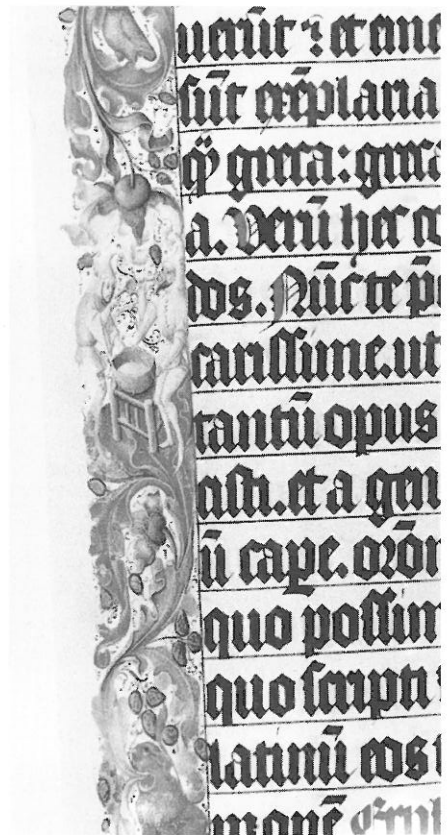 uerūt : et eme
sūt exēplaria
q̄ greca: greca
a. Verū hec co
dos. Nūc te p̄
carissime. ut
tantū opus
cisti. et a gen
ū cape. orōn
quo possim
quo scripti
latinū eos t
monē